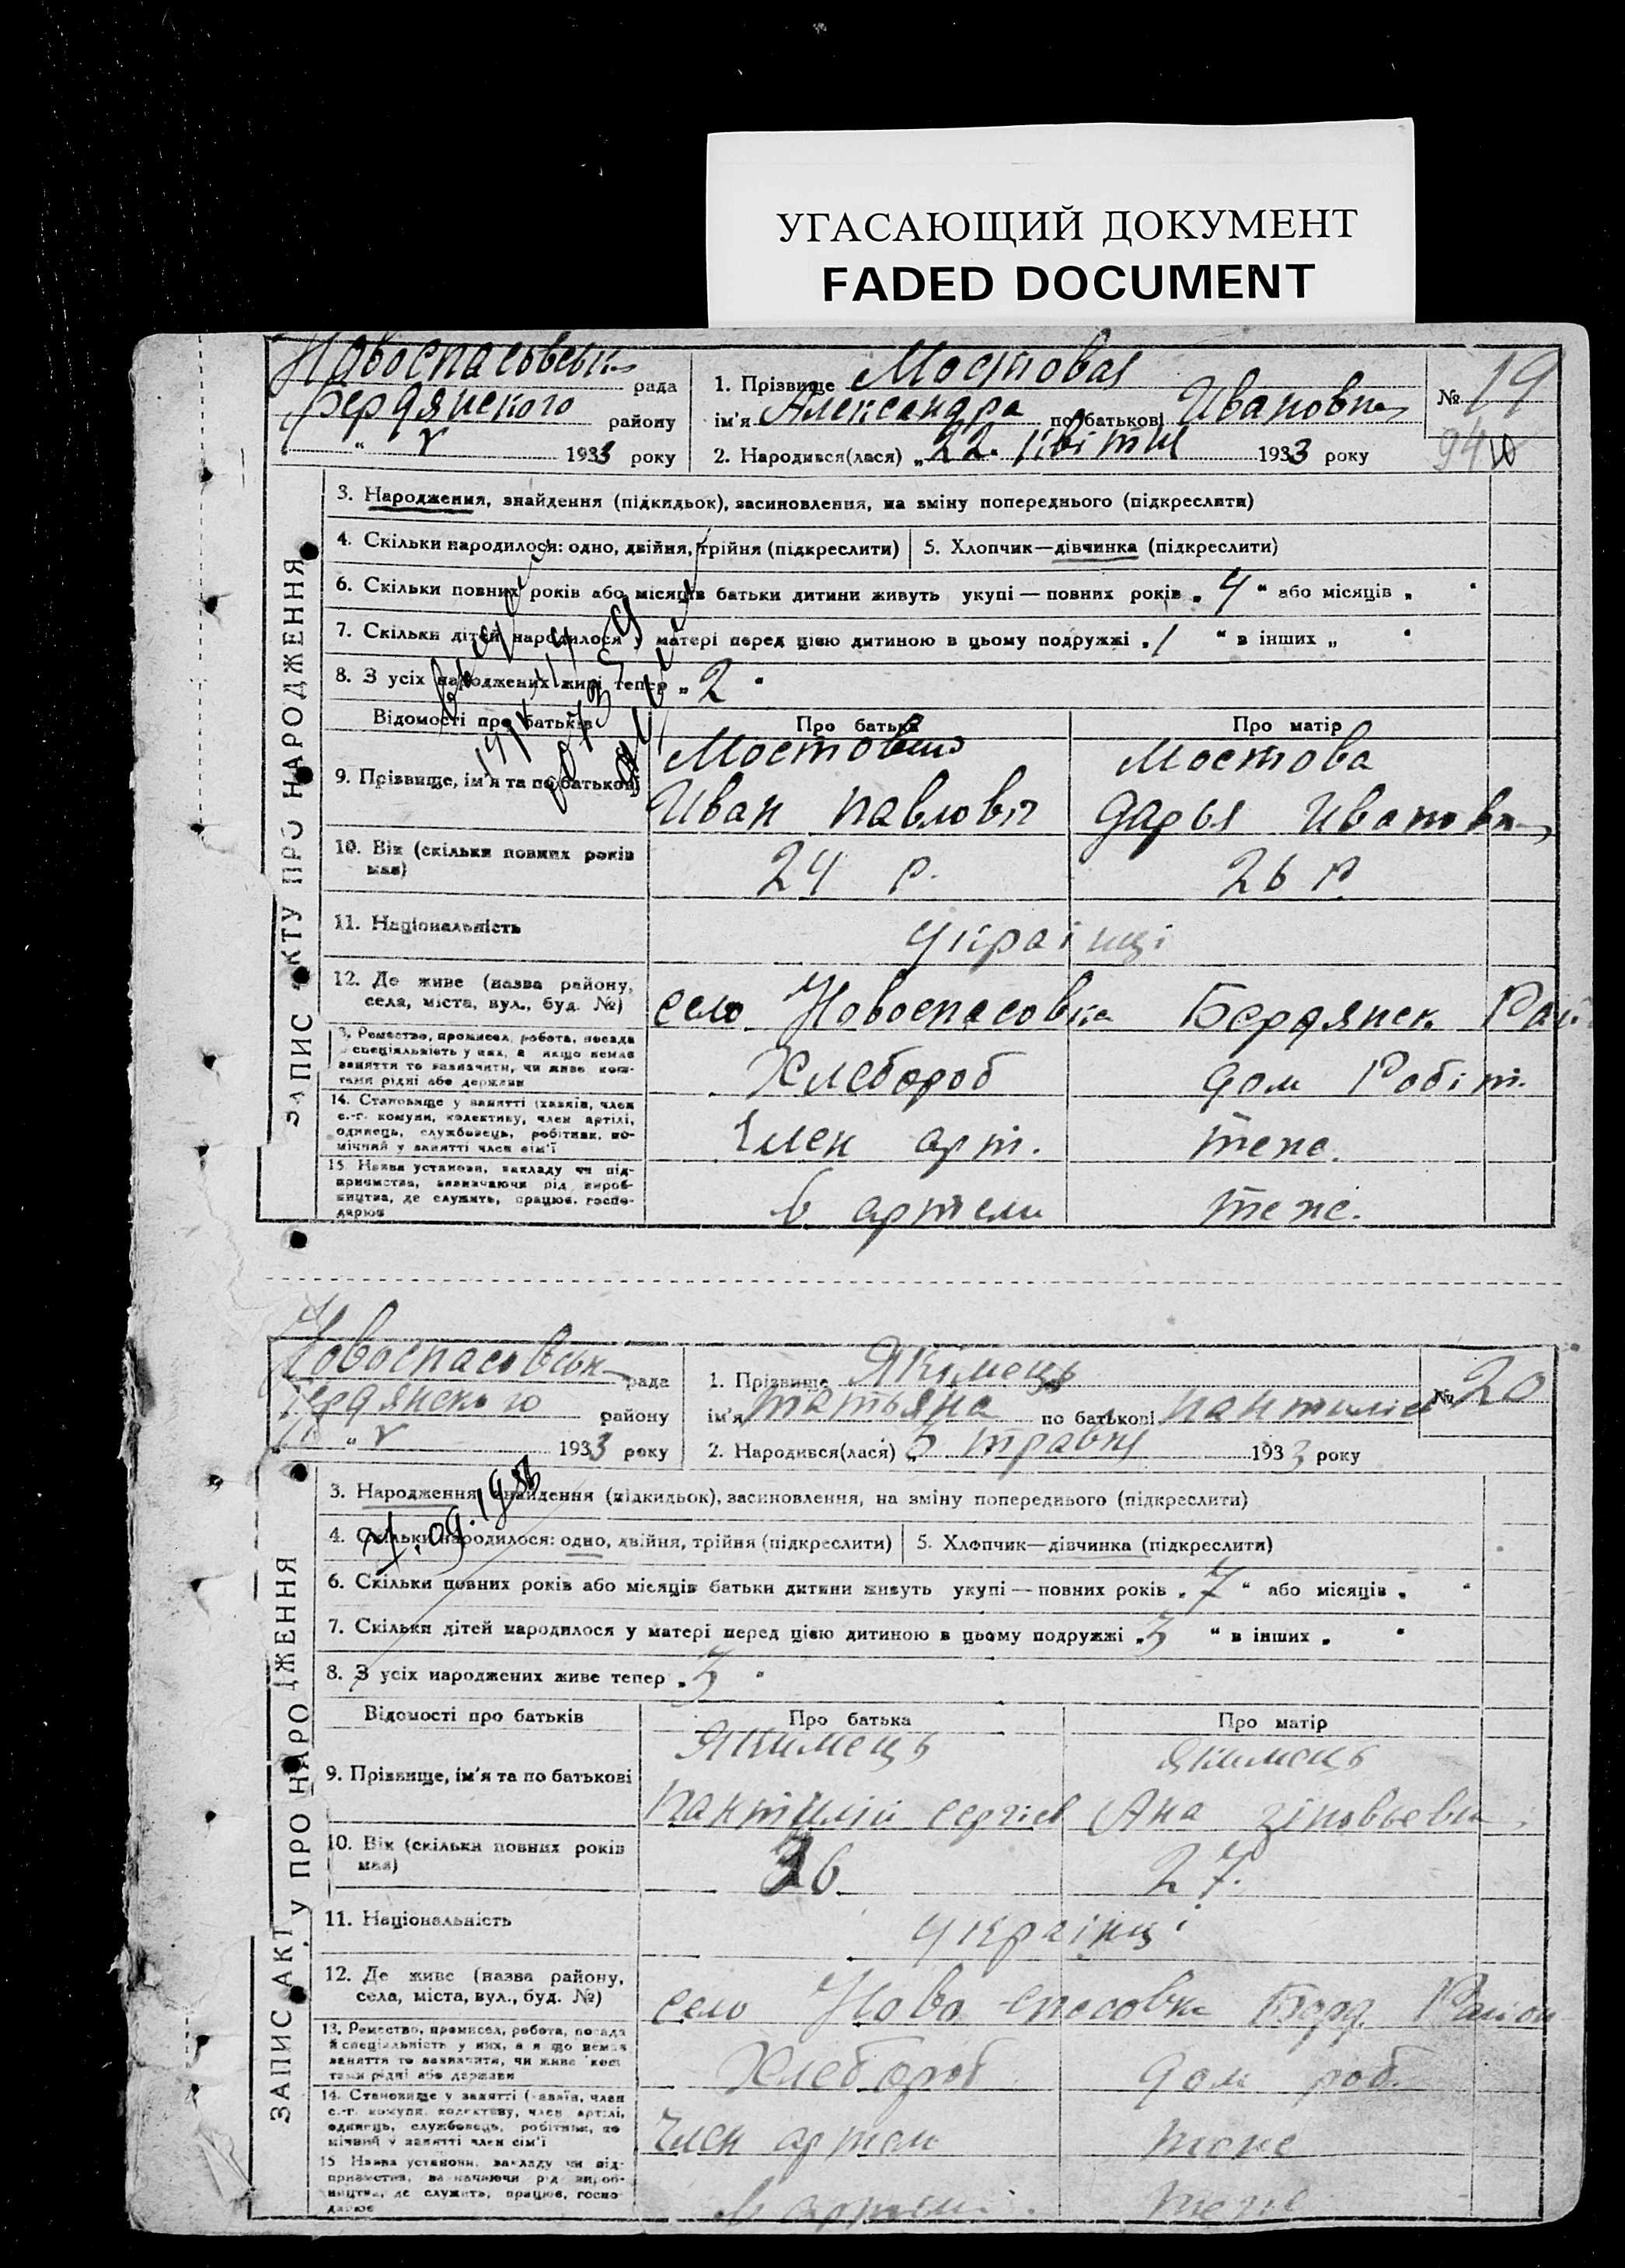 УГАСАЮЩИЙ ДОКУМЕНТ
FADED DOCUMENT
Новоспасовськ рада
Бердянского району
" V 1933 року
1. Прізвище Мостовая
ім'я Александра по батькові Ивановна
2. Народився(лася) „ 22. Квітня 1933 року
№ 19
94
ЗАПИС АКТУ ПРО НАРОДЖЕННЯ
3. Народження, знайдення (підкидьок), засиновлення, на зміну попереднього (підкреслити)
4. Скільки народилося: одно, двійня, трійня (підкреслити) 5. Хлопчик—дівчинка (підкреслити)
6. Скільки повних років або місяців батьки дитини живуть укупі — повних років „ 4 " або місяців „ "
7. Скільки дітей народилося у матері перед цією дитиною в цьому подружжі „ 1 " в інших „ "
8. З усіх народжених живі тепер „ 2 "
Відомості про батьків Про батька Про матір
9. Прізвище, ім'я та по батькові
Мостовий Мостова
Иван Павлович Дарья Ивановна
10. Вік (скільки повних років має) 24 р. 26 р
11. Національність українці
12. Де живе (назва району, села, міста, вул., буд. №) село Новоспасовка Бердянск. Рай.
13. Ремество, промисел, робота, посада й спеціяльність у них, а якщо немає заняття то зазначити, чи живе коштами рідні або держави Хлебороб дом Робіт.
14. Становище у занятті (хазяїн, член с.-г. комуни, колективу, член артілі, одинець, службовець, робітник, помічний у занятті член сім'ї Член арт. теже.
15. Назва установи, закладу чи підприємства, зазначаючи рід виробництва, де служить, працює, господарює в артели теже.
Новоспасовськ рада
Бердянского району
" V 1933 року
1. Прізвище Якімець
ім'я татьяна по батькові пантиліев
2. Народився(лася) „ 5 травня 1933 року
№ 20
ЗАПИС АКТУ ПРО НАРОДЖЕННЯ
3. Народження, знайдення (підкидьок), засиновлення, на зміну попереднього (підкреслити)
4. Скільки народилося: одно, двійня, трійня (підкреслити) 5. Хлопчик—дівчинка (підкреслити)
6. Скільки повних років або місяців батьки дитини живуть укупі — повних років „ 7 " або місяців „ "
7. Скільки дітей народилося у матері перед цією дитиною в цьому подружжі „ 3 " в інших „ "
8. З усіх народжених живе тепер „ 3 "
Відомості про батьків Про батька Про матір
9. Прізвище, ім'я та по батькові
Якимець Якимець
пантилій сергіев Ана зіновьевн
10. Вік (скільки повних років має) 36 27.
11. Національність українці
12. Де живе (назва району, села, міста, вул., буд. №) село Ново-спасовка Берд. Район
13. Ремество, промисел, робота, посада й спеціяльність у них, а якщо немає заняття то зазначити, чи живе коштами рідні або держави Хлебороб дом роб.
14. Становище у занятті (хазяїн, член с.-г. комуни, колективу, член артілі, одинець, службовець, робітник, помічний у занятті член сім'ї Член артели теже
15 Назва установи, закладу чи підприємства, зазначаючи рід виробництва, де служить, працює, господарює в артелі. теже